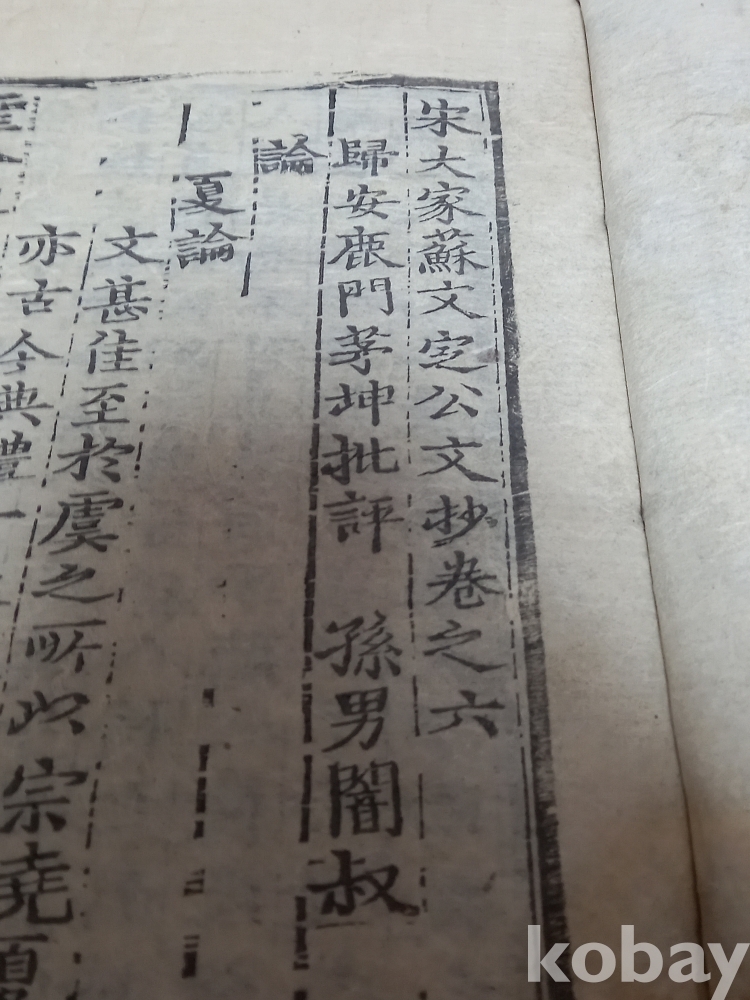 宋大家蘇文定公文抄卷之六
歸安鹿門茅坤批評 孫男闇叔
論
夏論
文甚佳至於虞之所以宗堯
亦古今典禮一
kobay